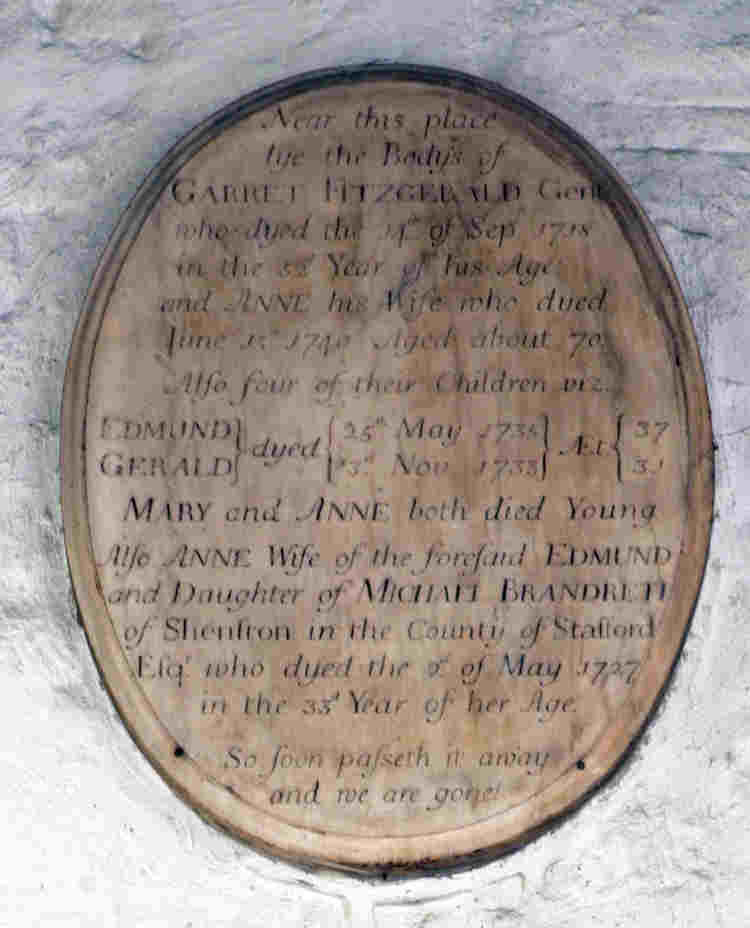 Near this place
lye the Bodys of
GARRET FITZGERALD Gent
who dyed the 14th of Sepr 1718
in the 52d Year of his Age
and ANNE his Wife who dyed
June 1740 Aged about 70.
Alſo four of their Children viz.
EDMUND } dyed { 25th May 1735 } Æt { 37
GERALD } { 23d Nov 1733 } {
MARY and ANNE both died Young
Alſo ANNE Wife of the foreſaid EDMUND
and Daughter of MICHAEL BRANDRETH
of Shenſton in the County of Stafford
Eſqr who dyed the of May 1727
in the 33d Year of her Age.
So ſoon paſseth it away
and we are gone!